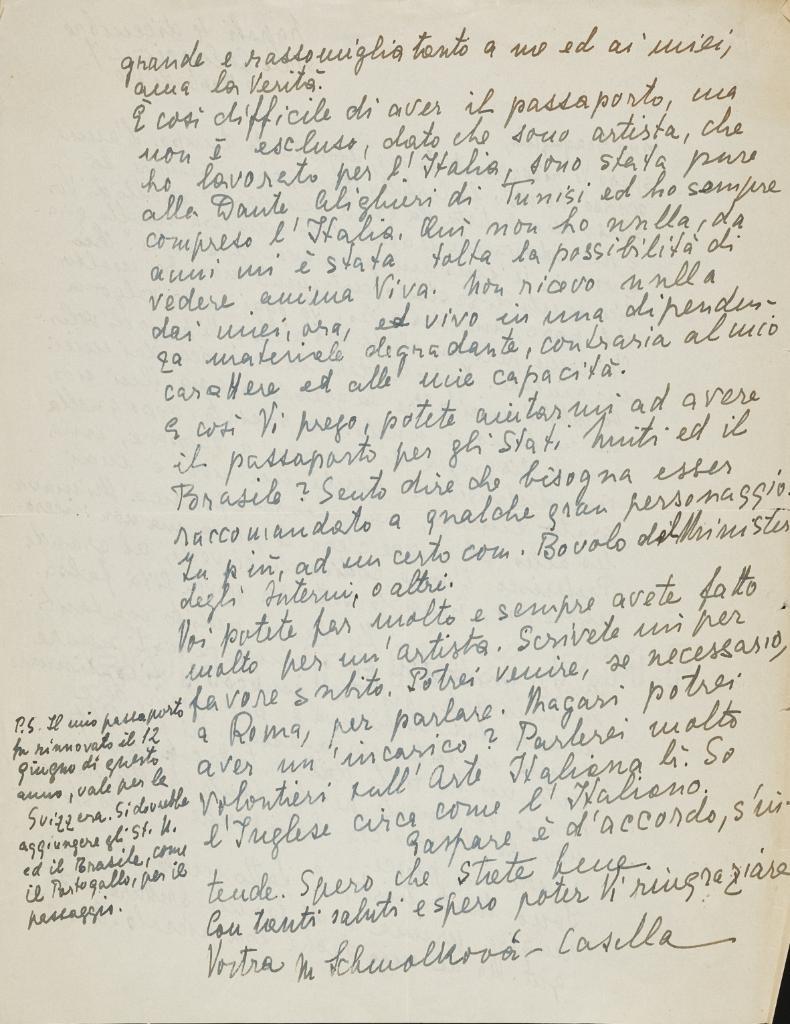 grande e rassomiglia tanto a me ed ai miei,
ama la Verità.
È così difficile di aver il passaporto, ma
non è escluso, dato che sono artista, che
ho lavorato per l'Italia, sono stata pure
alla Dante Alighieri di Tunisi ed ho sempre
compreso l'Italia. Qui non ho nulla, da
anni mi è stata tolta la possibilità di
vedere anima Viva. Non ricevo nulla
dai miei, ora, ed vivo in una dipenden-
za materiale degradante, contraria al mio
carattere ed alle mie capacità.
E così Vi prego, potete aiutarmi ad avere
il passaporto per gli Stati Uniti ed il
Brasile? Sento dire che bisogna esser
raccomandato a qualche gran personaggio.
In più, ad un certo com. Bovolo del Minister
degli Interni, o altri.
Voi potete far molto e sempre avete fatto
molto per un'artista. Scrivete mi per
favore subito. Potrei venire, se necessario,
a Roma, per parlare. Magari potrei
aver un'incarico? Parlerei molto
volontieri sull'Arte Italiana lì. So
l'Inglese circa come l'Italiano.
Gaspare è d'accordo, s'in-
tende. Spero che state bene.
Con tanti saluti e spero poter Vi ringraziare
Vostra M Schmolková - Casella
P.S. Il mio passaporto
fu rinnovato il 12
giugno di questo
anno, vale per la
Svizzera. Si dovrebbe
aggiungere gli St. U.
ed il Brasile, come
il Portogallo, per il
passaggio.